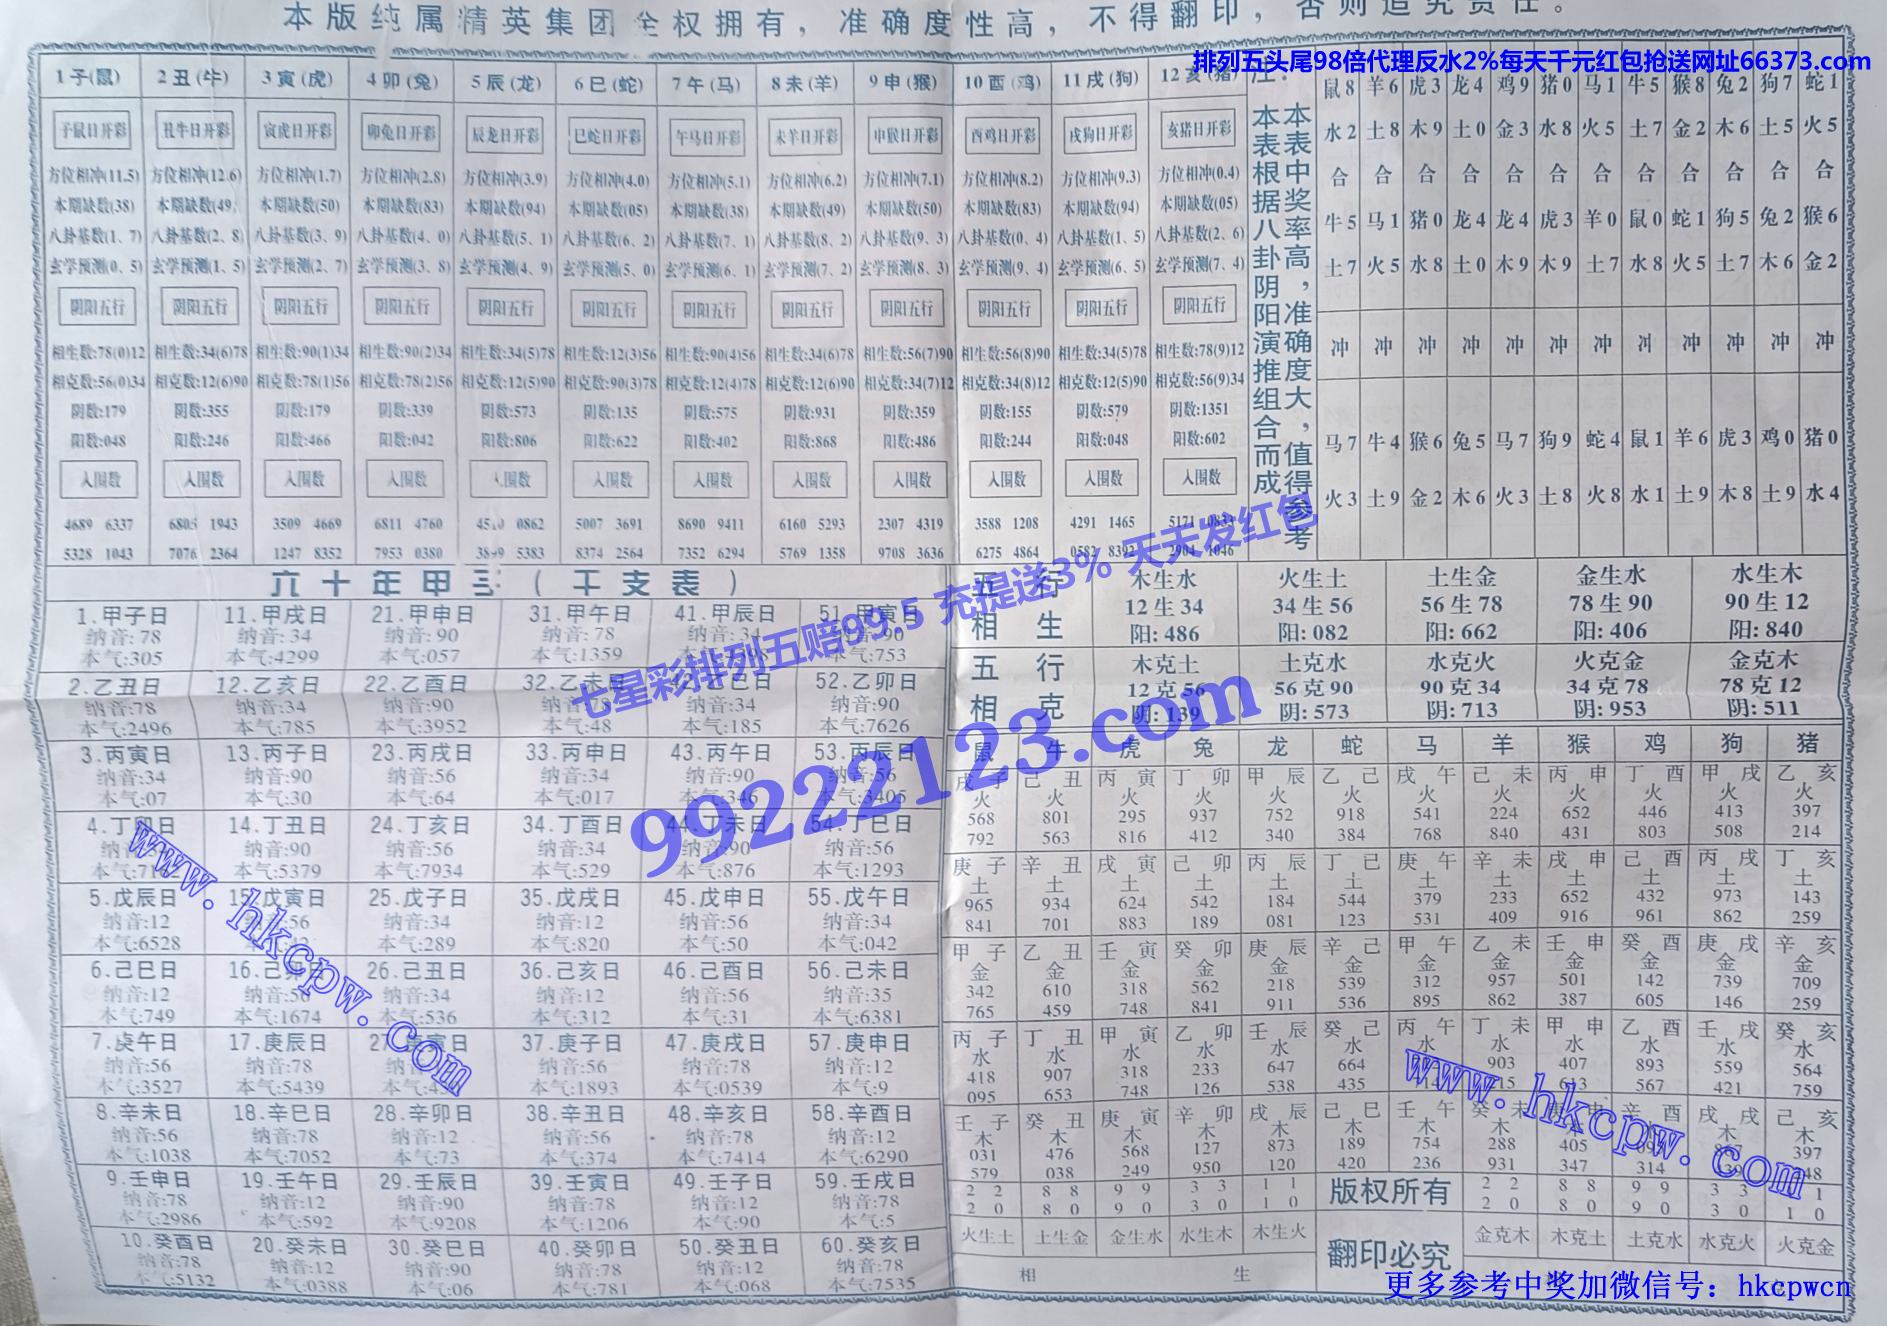 本版纯属精英集团全权拥有，准确度性高，不得翻印，否则追究责任。
排列五头尾98倍代理反水2%每天千元红包抢送网址66373.com
1子(鼠) 2丑(牛) 3寅(虎) 4卯(兔) 5辰(龙) 6巳(蛇) 7午(马) 8未(羊) 9申(猴) 10酉(鸡) 11戌(狗) 12亥(猪)
子鼠日开彩 丑牛日开彩 寅虎日开彩 卯兔日开彩 辰龙日开彩 巳蛇日开彩 午马日开彩 未羊日开彩 申猴日开彩 酉鸡日开彩 戌狗日开彩 亥猪日开彩
方位相冲(11.5) 方位相冲(12.6) 方位相冲(1.7) 方位相冲(2.8) 方位相冲(3.9) 方位相冲(4.0) 方位相冲(5.1) 方位相冲(6.2) 方位相冲(7.1) 方位相冲(8.2) 方位相冲(9.3) 方位相冲(0.4)
本期缺数(38) 本期缺数(49) 本期缺数(50) 本期缺数(83) 本期缺数(94) 本期缺数(05) 本期缺数(38) 本期缺数(49) 本期缺数(50) 本期缺数(83) 本期缺数(94) 本期缺数(05)
八卦基数(1、7) 八卦基数(2、8) 八卦基数(3、9) 八卦基数(4、0) 八卦基数(5、1) 八卦基数(6、2) 八卦基数(7、1) 八卦基数(8、2) 八卦基数(9、3) 八卦基数(0、4) 八卦基数(1、5) 八卦基数(2、6)
玄学预测(0、5) 玄学预测(1、5) 玄学预测(2、7) 玄学预测(3、8) 玄学预测(4、9) 玄学预测(5、0) 玄学预测(6、1) 玄学预测(7、2) 玄学预测(8、3) 玄学预测(9、4) 玄学预测(6、5) 玄学预测(7、4)
阴阳五行 阴阳五行 阴阳五行 阴阳五行 阴阳五行 阴阳五行 阴阳五行 阴阳五行 阴阳五行 阴阳五行 阴阳五行 阴阳五行
相生数:78(0)12 相生数:34(6)78 相生数:90(1)34 相生数:90(2)34 相生数:34(5)78 相生数:12(3)56 相生数:90(4)56 相生数:34(6)78 相生数:56(7)90 相生数:56(8)90 相生数:34(5)78 相生数:78(9)12
相克数:56(0)34 相克数:12(6)90 相克数:78(1)56 相克数:78(2)56 相克数:12(5)90 相克数:90(3)78 相克数:12(4)78 相克数:12(6)90 相克数:34(7)12 相克数:34(8)12 相克数:12(5)90 相克数:56(9)34
阴数:179 阴数:355 阴数:179 阴数:339 阴数:573 阴数:135 阴数:575 阴数:931 阴数:359 阴数:155 阴数:579 阴数:1351
阳数:048 阳数:246 阳数:466 阳数:042 阳数:806 阳数:622 阳数:402 阳数:868 阳数:486 阳数:244 阳数:048 阳数:602
入围数 入围数 入围数 入围数 入围数 入围数 入围数 入围数 入围数 入围数 入围数 入围数
4689 6337 6805 1943 3509 4669 6811 4760 0862 5007 3691 8690 9411 6160 5293 2307 4319 3588 1208 4291 1465 5171
5328 1043 7076 2364 1247 8352 7953 0380 5383 8374 2564 7352 6294 5769 1358 9708 3636 6275 4864 0582 8392 2904 1046
注：
本表中奖率高，准确度大，值得参考
本表根据八卦阴阳演推组合而成
鼠8 羊6 虎3 龙4 鸡9 猪0 马1 牛5 猴8 兔2 狗7 蛇1
水2 土8 木9 土0 金3 水8 火5 土7 金2 木6 土5 火5
合 合 合 合 合 合 合 合 合 合 合 合
牛5 马1 猪0 龙4 龙4 虎3 羊0 鼠0 蛇1 狗5 兔2 猴6
土7 火5 水8 土0 木9 木9 土7 水8 火5 土7 木6 金2
冲 冲 冲 冲 冲 冲 冲 冲 冲 冲 冲 冲
马7 牛4 猴6 兔5 马7 狗9 蛇4 鼠1 羊6 虎3 鸡0 猪0
火3 土9 金2 木6 火3 土8 火8 水1 土9 木8 土9 水4
六十年甲子(干支表)
1.甲子日 11.甲戌日 21.甲申日 31.甲午日 41.甲辰日 51.甲寅日
纳音:78 纳音:34 纳音:90 纳音:78 纳音:34 纳音:90
本气:305 本气:4299 本气:057 本气:1359 本气:753
2.乙丑日 12.乙亥日 22.乙酉日 32.乙未日 42.乙巳日 52.乙卯日
纳音:78 纳音:34 纳音:90 纳音:78 纳音:34 纳音:90
本气:2496 本气:785 本气:3952 本气:48 本气:185 本气:7626
3.丙寅日 13.丙子日 23.丙戌日 33.丙申日 43.丙午日 53.丙辰日
纳音:34 纳音:90 纳音:56 纳音:34 纳音:90 纳音:56
本气:07 本气:30 本气:64 本气:017 本气:346 本气:3405
4.丁卯日 14.丁丑日 24.丁亥日 34.丁酉日 44.丁未日 54.丁巳日
纳音:34 纳音:90 纳音:56 纳音:34 纳音:90 纳音:56
本气:5379 本气:7934 本气:529 本气:876 本气:1293
5.戊辰日 15.戊寅日 25.戊子日 35.戊戌日 45.戊申日 55.戊午日
纳音:12 纳音:56 纳音:34 纳音:12 纳音:56 纳音:34
本气:6528 本气:289 本气:820 本气:50 本气:042
6.己巳日 16.己卯日 26.己丑日 36.己亥日 46.己酉日 56.己未日
纳音:12 纳音:56 纳音:34 纳音:12 纳音:56 纳音:35
本气:749 本气:1674 本气:536 本气:312 本气:31 本气:6381
7.庚午日 17.庚辰日 27.庚寅日 37.庚子日 47.庚戌日 57.庚申日
纳音:56 纳音:78 纳音:56 纳音:78 纳音:12
本气:3527 本气:5439 本气:1893 本气:0539 本气:9
8.辛未日 18.辛巳日 28.辛卯日 38.辛丑日 48.辛亥日 58.辛酉日
纳音:56 纳音:78 纳音:12 纳音:56 纳音:78 纳音:12
本气:1038 本气:7052 本气:73 本气:374 本气:7414 本气:6290
9.壬申日 19.壬午日 29.壬辰日 39.壬寅日 49.壬子日 59.壬戌日
纳音:78 纳音:12 纳音:90 纳音:78 纳音:12 纳音:78
本气:2986 本气:592 本气:9208 本气:1206 本气:90 本气:5
10.癸酉日 20.癸未日 30.癸巳日 40.癸卯日 50.癸丑日 60.癸亥日
纳音:78 纳音:12 纳音:90 纳音:78 纳音:12 纳音:78
本气:5132 本气:0388 本气:06 本气:781 本气:068 本气:7535
五行相生
木生水 火生土 土生金 金生水 水生木
12生34 34生56 56生78 78生90 90生12
阳:486 阳:082 阳:662 阳:406 阳:840
五行相克
木克土 土克水 水克火 火克金 金克木
12克56 56克90 90克34 34克78 78克12
阴:139 阴:573 阴:713 阴:953 阴:511
鼠 牛 虎 兔 龙 蛇 马 羊 猴 鸡 狗 猪
戊子 己丑 丙寅 丁卯 甲辰 乙己 戌午 己未 丙申 丁酉 甲戌 乙亥
火 火 火 火 火 火 火 火 火 火 火 火
568 801 295 937 752 918 541 224 652 446 413 397
792 563 816 412 340 384 768 840 431 803 508 214
庚子 辛丑 戌寅 己卯 丙辰 丁己 庚午 辛未 戌申 己酉 丙戌 丁亥
土 土 土 土 土 土 土 土 土 土 土 土
965 934 624 542 184 544 379 233 652 432 973 143
841 701 883 189 081 123 531 409 916 961 862 259
甲子 乙丑 壬寅 癸卯 庚辰 辛己 甲午 乙未 壬申 癸酉 庚戌 辛亥
金 金 金 金 金 金 金 金 金 金 金 金
342 610 318 562 218 539 312 957 501 142 739 709
765 459 748 841 911 536 895 862 387 605 146 259
丙子 丁丑 甲寅 乙卯 壬辰 癸己 丙午 丁未 甲申 乙酉 壬戌 癸亥
水 水 水 水 水 水 水 水 水 水 水 水
418 907 318 233 647 664 903 407 893 559 564
095 653 748 126 538 435 567 421 759
壬子 癸丑 庚寅 辛卯 戌辰 己巳 壬午 癸未 庚申 辛酉 戌戌 己亥
木 木 木 木 木 木 木 木 木 木
031 476 568 127 873 189 754 288 405 397
579 038 249 950 120 420 236 931 347 314
22 88 99 33 11 版权所有 22 88 99 33
20 80 90 30 10 20 80 90 30 10
火生土 土生金 金生水 水生木 木生火 翻印必究 金克木 木克土 土克水 水克火 火克金
相生
七星彩排列五赔99.5 充提送3% 天天发红包
99222123.com
www.hkcpw.com
www.hkcpw.com
更多参考中奖加微信号：hkcpwcn